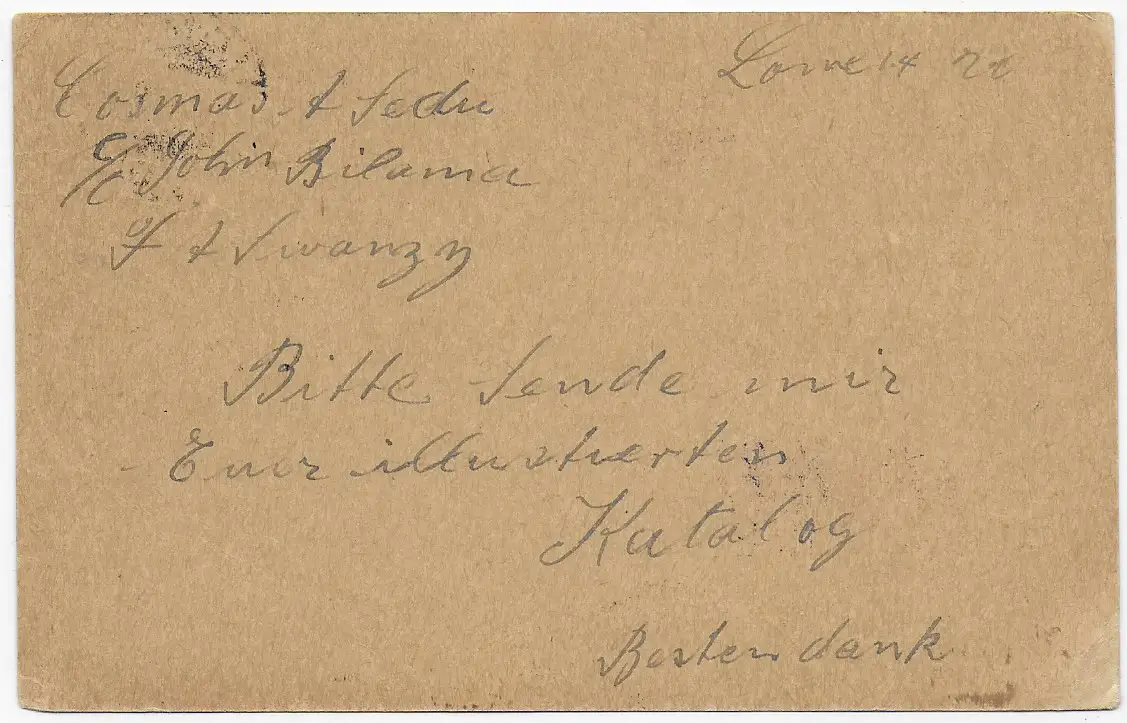 Lome 14
Cosmas A Sedu
c/o John Bilama
F & A Swanzy
Bitte sende mir
Euer illustrierten
Katalog
Besten dank